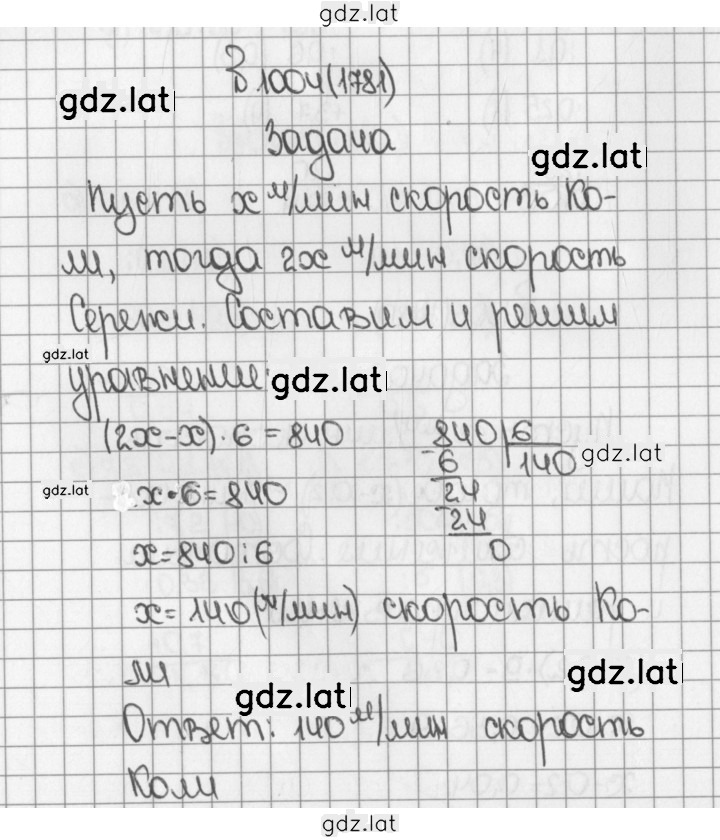 gdz.lat
В 1004(1781)
gdz.lat
Задача
gdz.lat
Пусть x м/мин скорость Ко-
ли, тогда 2x м/мин скорость
Сережи. Составим и решим
gdz.lat
уравнение:
gdz.lat
(2x-x)·6=840
840 6
gdz.lat
6 140
gdz.lat
x·6=840
24
24
x=840:6
0
x=140(м/мин) скорость Ко-
ли
gdz.lat
gdz.lat
Ответ: 140 м/мин скорость
Коли
gdz.lat